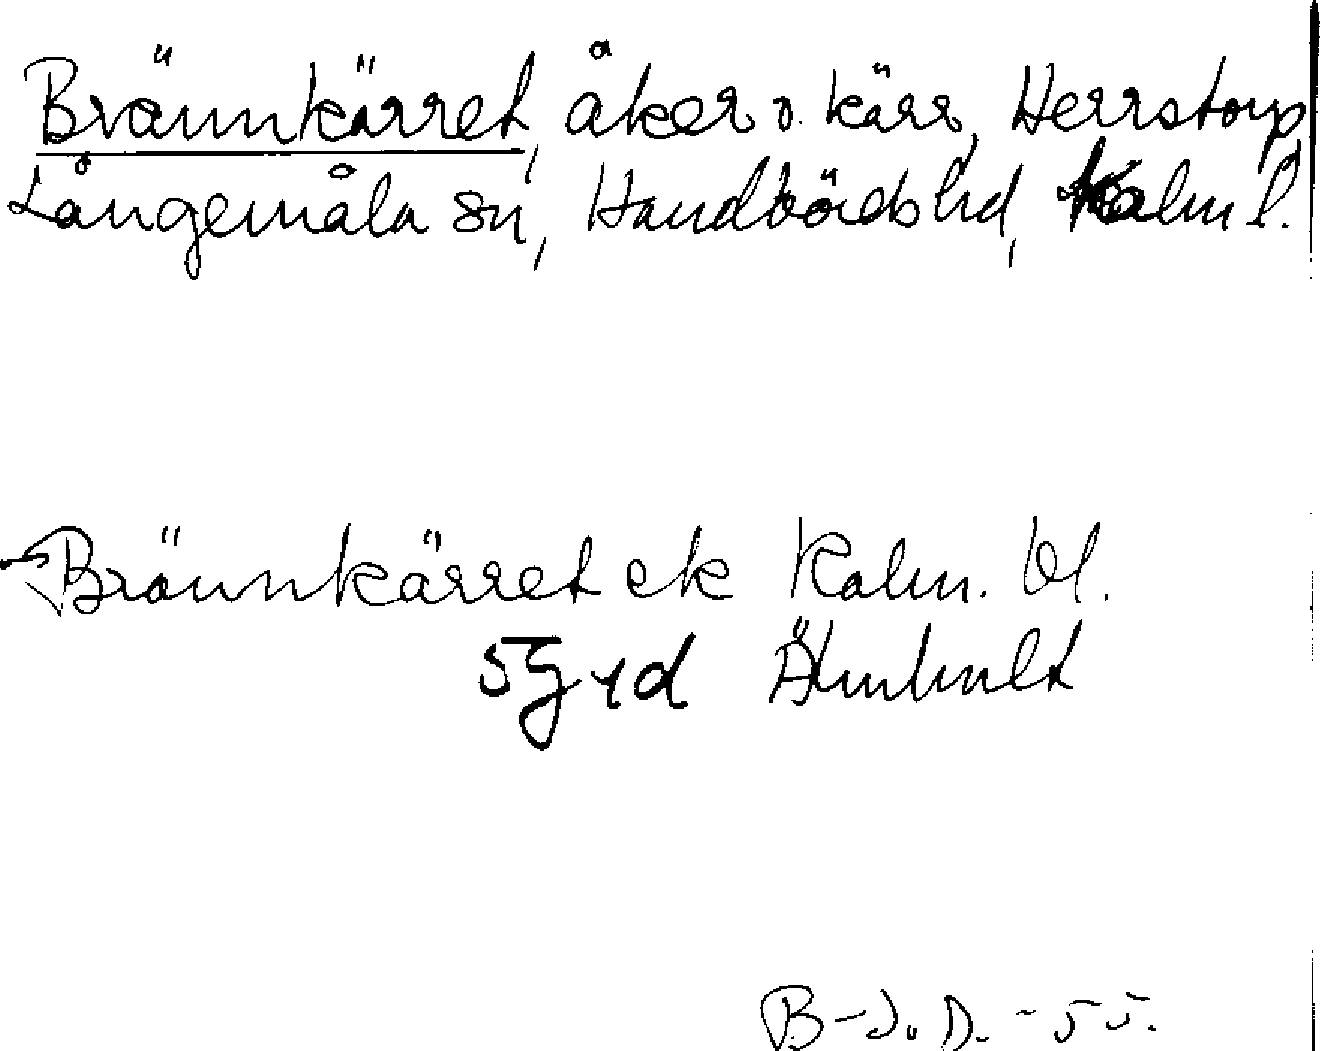 Brännkärret, åker o. kärr, Herrstorp
Långemåla sn, Handbörds hd, Kalm l.
Brännkärret ek Kalm. bl.
5 G y d Älmhult
B-J. D. - 55.